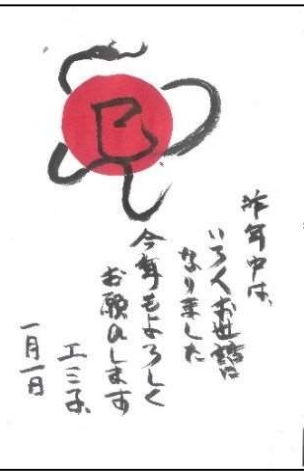 巳
昨年中は、
いろくお世話に
なりました
今年もよろしく
お願いします
エミ子
一月一日